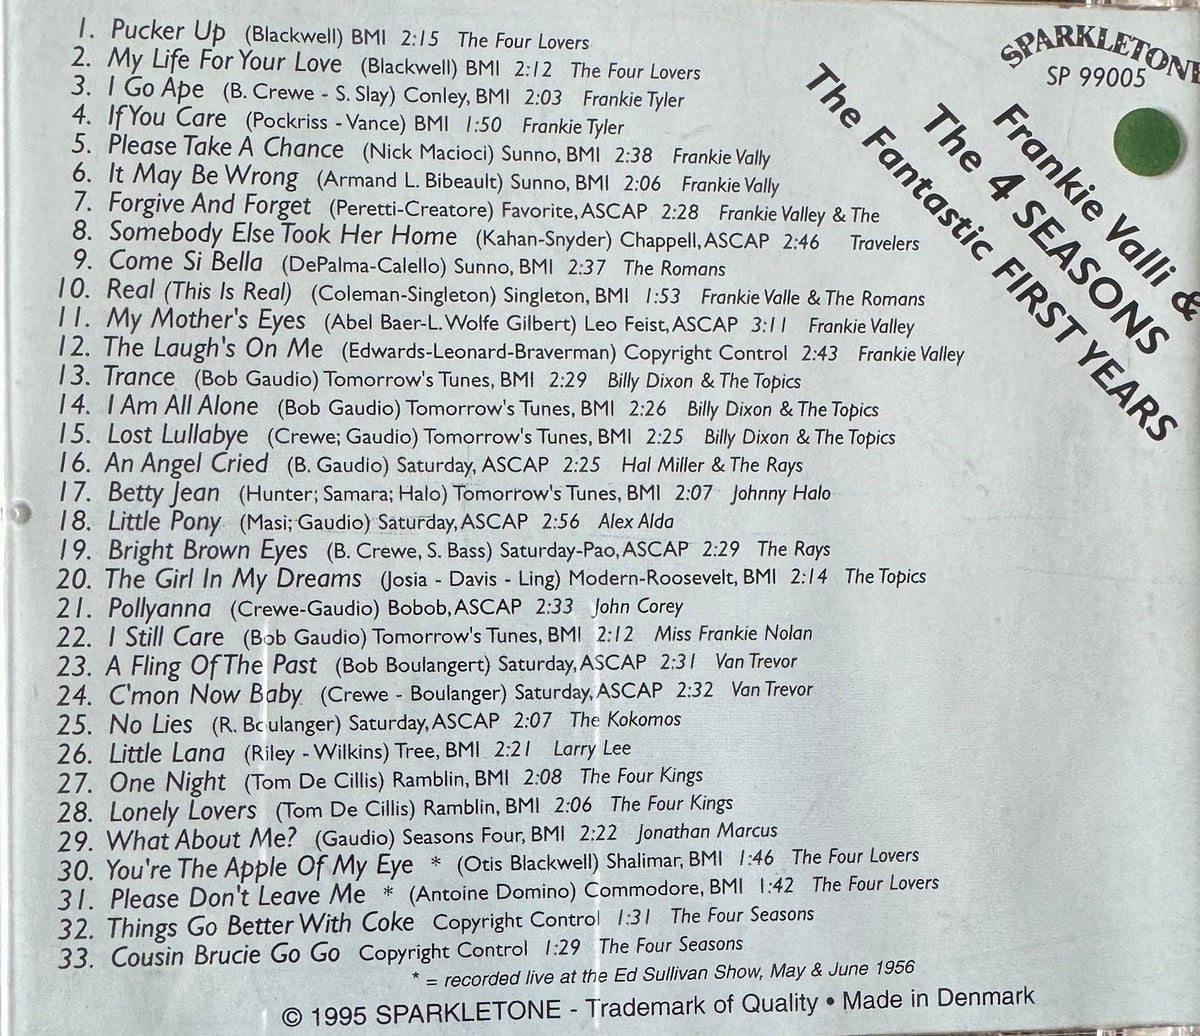 1. Pucker Up (Blackwell) BMI 2:15 The Four Lovers
2. My Life For Your Love (Blackwell) BMI 2:12 The Four Lovers
3. I Go Ape (B. Crewe - S. Slay) Conley, BMI 2:03 Frankie Tyler
4. If You Care (Pockriss - Vance) BMI 1:50 Frankie Tyler
5. Please Take A Chance (Nick Macioci) Sunno, BMI 2:38 Frankie Vally
6. It May Be Wrong (Armand L. Bibeault) Sunno, BMI 2:06 Frankie Vally
7. Forgive And Forget (Peretti-Creatore) Favorite, ASCAP 2:28 Frankie Valley & The
8. Somebody Else Took Her Home (Kahan-Snyder) Chappell, ASCAP 2:46 Travelers
9. Come Si Bella (DePalma-Calello) Sunno, BMI 2:37 The Romans
10. Real (This Is Real) (Coleman-Singleton) Singleton, BMI 1:53 Frankie Valle & The Romans
11. My Mother's Eyes (Abel Baer-L. Wolfe Gilbert) Leo Feist, ASCAP 3:11 Frankie Valley
12. The Laugh's On Me (Edwards-Leonard-Braverman) Copyright Control 2:43 Frankie Valley
13. Trance (Bob Gaudio) Tomorrow's Tunes, BMI 2:29 Billy Dixon & The Topics
14. I Am All Alone (Bob Gaudio) Tomorrow's Tunes, BMI 2:26 Billy Dixon & The Topics
15. Lost Lullabye (Crewe; Gaudio) Tomorrow's Tunes, BMI 2:25 Billy Dixon & The Topics
16. An Angel Cried (B. Gaudio) Saturday, ASCAP 2:25 Hal Miller & The Rays
17. Betty Jean (Hunter; Samara; Halo) Tomorrow's Tunes, BMI 2:07 Johnny Halo
18. Little Pony (Masi; Gaudio) Saturday, ASCAP 2:56 Alex Alda
19. Bright Brown Eyes (B. Crewe, S. Bass) Saturday-Pao, ASCAP 2:29 The Rays
20. The Girl In My Dreams (Josia - Davis - Ling) Modern-Roosevelt, BMI 2:14 The Topics
21. Pollyanna (Crewe-Gaudio) Bobob, ASCAP 2:33 John Corey
22. I Still Care (Bob Gaudio) Tomorrow's Tunes, BMI 2:12 Miss Frankie Nolan
23. A Fling Of The Past (Bob Boulangert) Saturday, ASCAP 2:31 Van Trevor
24. C'mon Now Baby (Crewe - Boulanger) Saturday, ASCAP 2:32 Van Trevor
25. No Lies (R. Boulanger) Saturday, ASCAP 2:07 The Kokomos
26. Little Lana (Riley - Wilkins) Tree, BMI 2:21 Larry Lee
27. One Night (Tom De Cillis) Ramblin, BMI 2:08 The Four Kings
28. Lonely Lovers (Tom De Cillis) Ramblin, BMI 2:06 The Four Kings
29. What About Me? (Gaudio) Seasons Four, BMI 2:22 Jonathan Marcus
30. You're The Apple Of My Eye * (Otis Blackwell) Shalimar, BMI 1:46 The Four Lovers
31. Please Don't Leave Me * (Antoine Domino) Commodore, BMI 1:42 The Four Lovers
32. Things Go Better With Coke Copyright Control 1:31 The Four Seasons
33. Cousin Brucie Go Go Copyright Control 1:29 The Four Seasons
* = recorded live at the Ed Sullivan Show, May & June 1956
© 1995 SPARKLETONE - Trademark of Quality • Made in Denmark
SPARKLETONE
SP 99005
Frankie Valli &
The 4 SEASONS
The Fantastic FIRST YEARS